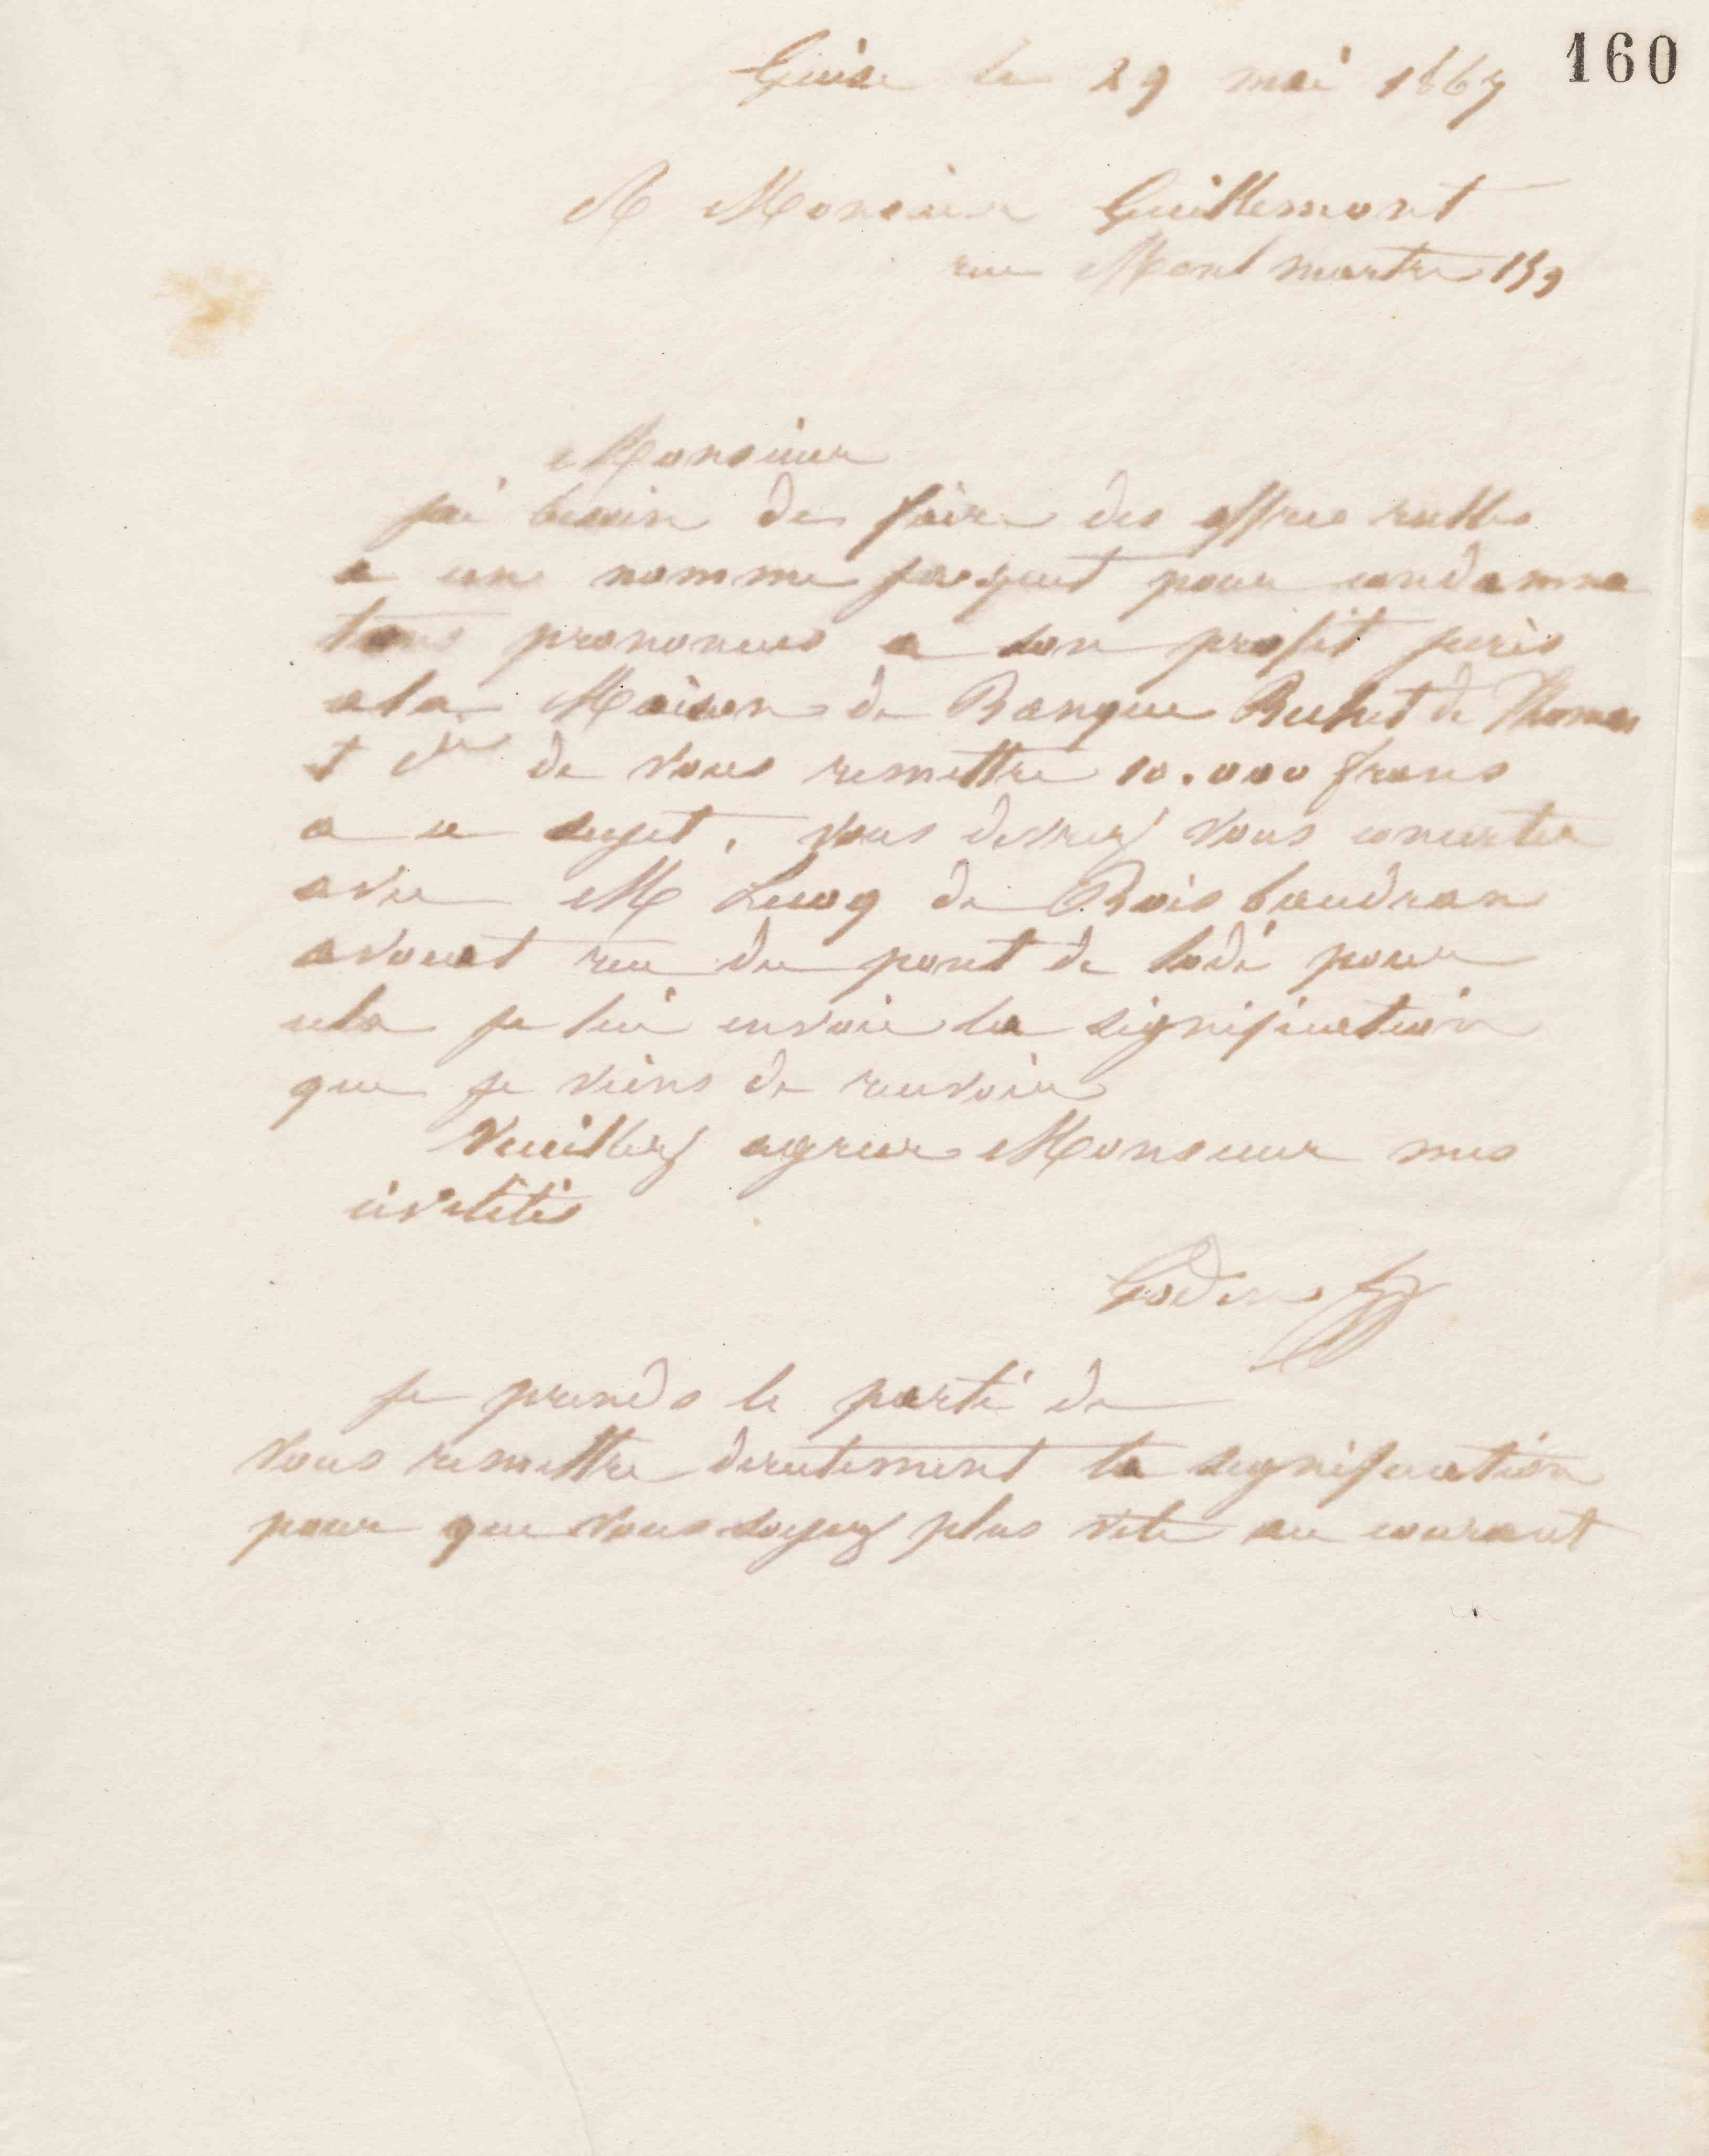 160
Guise le 29 mai 1867
A Monsieur Guillemont
rue Montmartre 159
Monsieur
j'ai besoin de faire des offres reelles
a un nomme Jacquet pour condamna
tions prononcees a son profit j'ecris
a la Maison de Banque de Thomas
et Cie de vous remettre 10.000 francs
a ce sujet, vous devrez vous concerter
avec M Lecoq de Boisbaudran
avouat rue du pont de lodi pour
cela je lui envoie la signification
que je viens de recevoir
Veuillez agreer Monsieur mes
civilités
Godin
je prends le parti de
vous remettre directement la signification
pour que vous soyez plus vite au courant